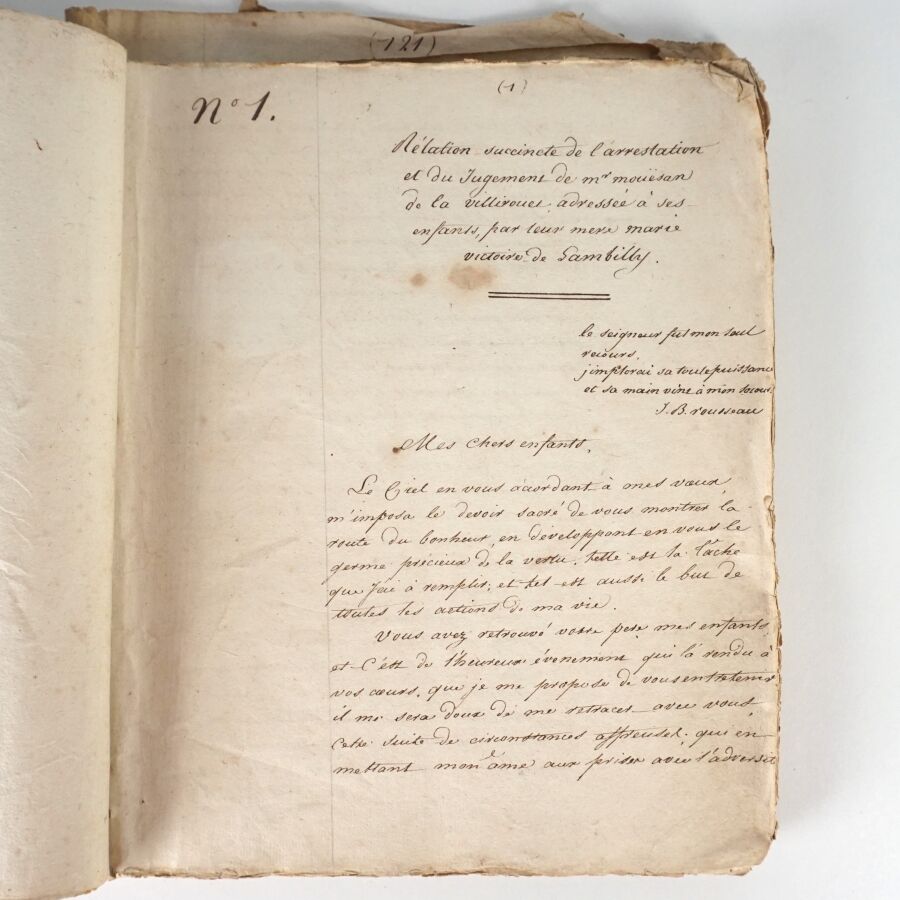 (121)
N° 1.
(1)
Rélation succincte de l'arrestation
et du Jugement de mr mouësan
de la villirouet, adressée à ses
enfants, par leur mere marie
victoire de Lambilly.
le seigneur fut mon seul
recours,
j'implorai sa toute puissance
et sa main vint à mon secours.
J. B. rousseau
Mes chers enfants,
Le Ciel en vous acordant à mes vœux,
m'imposa le devoir sacré de vous montrer la
route du bonheur, en développant en vous le
germe précieux de la vertu. telle est la tâche
que j'ai à remplir; et tel est aussi le but de
toutes les actions de ma vie.
Vous avez retrouvé votre pere mes enfants,
et C'est de l'heureux évenement qui l'à rendu à
vos cœurs, que je me propose de vous entretenir
il me sera doux de me retracer avec vous
cette suite de circonstances affreuses, qui en
mettant mon âme aux prises avec l'adversit